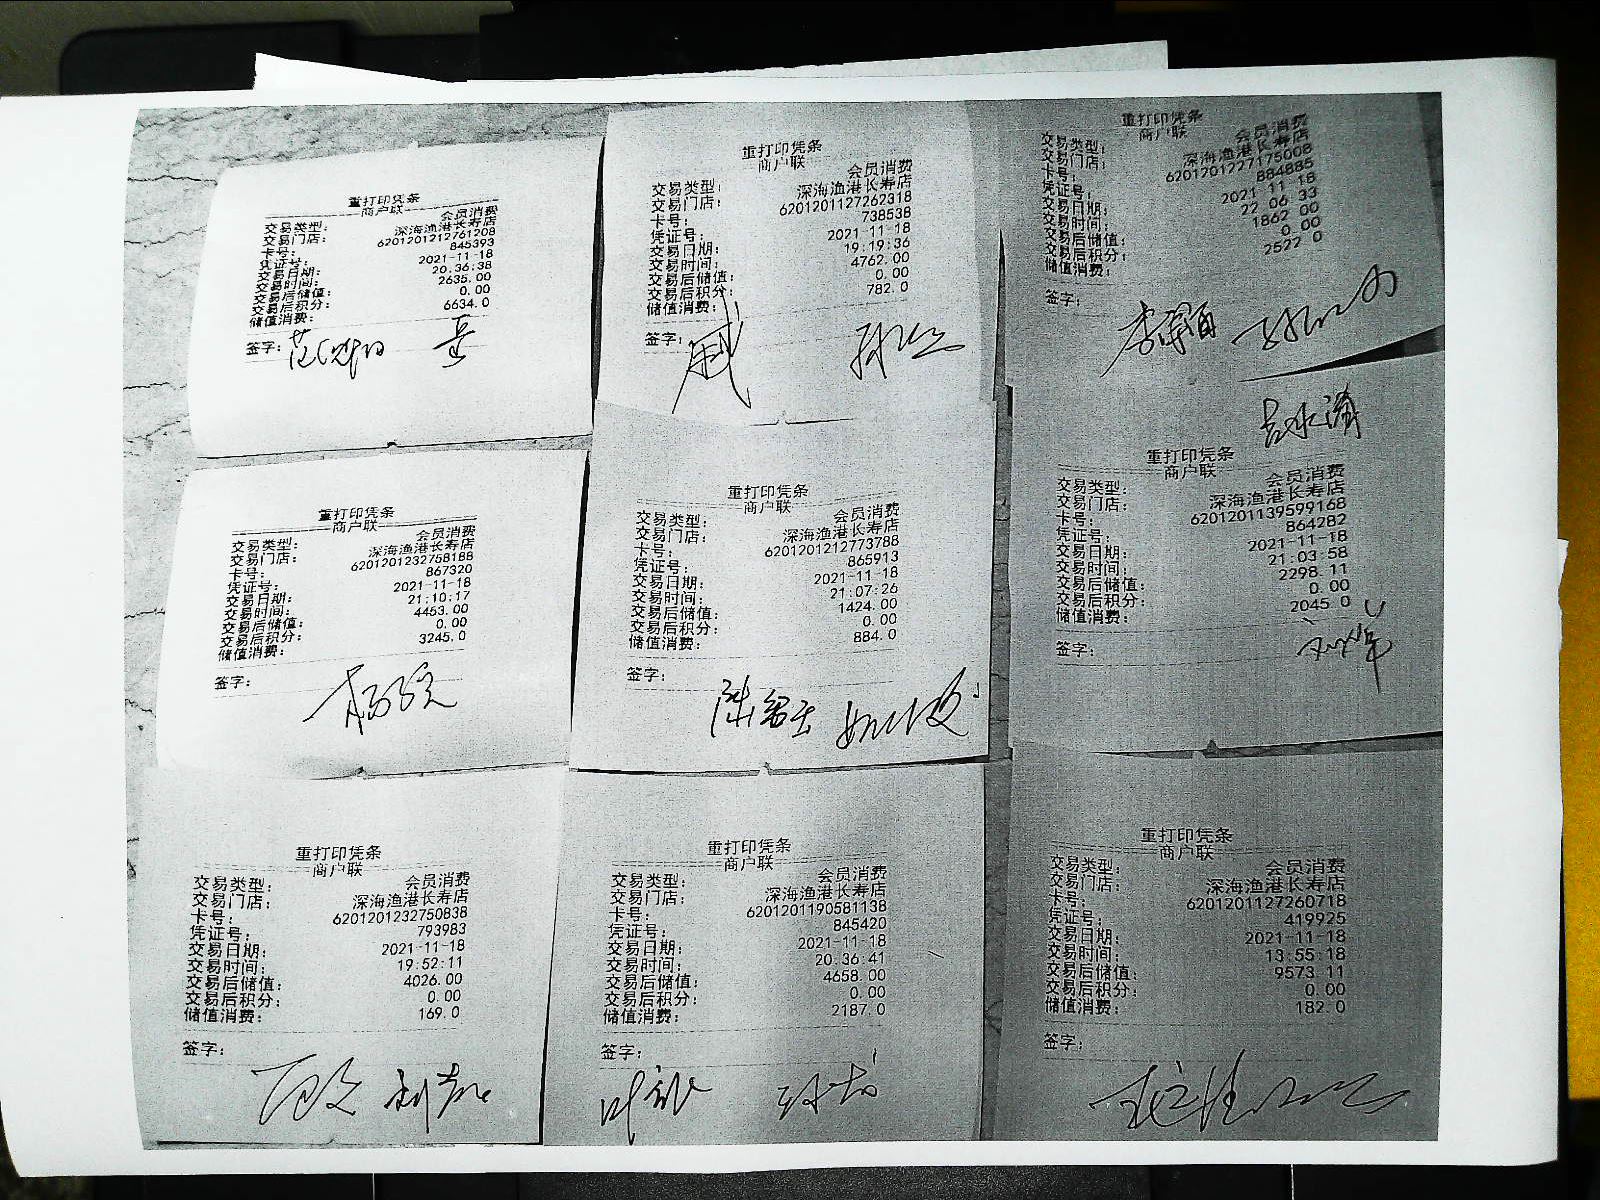 重打印凭条
商户联
交易类型： 会员消费
交易门店： 深海渔港长寿店
卡号： 6201201212761208
凭证号： 845393
交易日期： 2021-11-18
交易时间： 20:36:38
交易后储值： 2635.00
交易后积分： 0.00
储值消费： 6634.0
签字：
重打印凭条
商户联
交易类型： 会员消费
交易门店： 深海渔港长寿店
卡号： 6201201127262318
凭证号： 738538
交易日期： 2021-11-18
交易时间： 19:19:36
交易后储值： 4762.00
交易后积分： 0.00
储值消费： 782.0
签字： 戚
重打印凭条
商户联
交易类型： 会员消费
交易门店： 深海渔港长寿店
卡号： 6201201227175008
凭证号： 884885
交易日期： 2021 11 18
交易时间： 22 06 33
交易后储值： 1862 00
交易后积分： 0.00
储值消费： 2522 0
签字：
重打印凭条
商户联
交易类型： 会员消费
交易门店： 深海渔港长寿店
卡号： 6201201232758188
凭证号： 867320
交易日期： 2021-11-18
交易时间： 21:10:17
交易后储值： 4453.00
交易后积分： 0.00
储值消费： 3245.0
签字：
重打印凭条
商户联
交易类型： 会员消费
交易门店： 深海渔港长寿店
卡号： 6201201212773788
凭证号： 865913
交易日期： 2021-11-18
交易时间： 21:07:26
交易后储值： 1424.00
交易后积分： 0.00
储值消费： 884.0
签字：
重打印凭条
商户联
交易类型： 会员消费
交易门店： 深海渔港长寿店
卡号： 6201201139599168
凭证号： 864282
交易日期： 2021-11-18
交易时间： 21:03:58
交易后储值： 2298.11
交易后积分： 0.00
储值消费： 2045.0
签字：
重打印凭条
商户联
交易类型： 会员消费
交易门店： 深海渔港长寿店
卡号： 6201201232750838
凭证号： 793983
交易日期： 2021-11-18
交易时间： 19:52:11
交易后储值： 4026.00
交易后积分： 0.00
储值消费： 169.0
签字：
重打印凭条
商户联
交易类型： 会员消费
交易门店： 深海渔港长寿店
卡号： 6201201190581138
凭证号： 845420
交易日期： 2021-11-18
交易时间： 20:36:41
交易后储值： 4658.00
交易后积分： 0.00
储值消费： 2187.0
签字：
重打印凭条
商户联
交易类型： 会员消费
交易门店： 深海渔港长寿店
卡号： 6201201127260718
凭证号： 419925
交易日期： 2021-11-18
交易时间： 13:55:18
交易后储值： 9573.11
交易后积分： 0.00
储值消费： 182.0
签字：